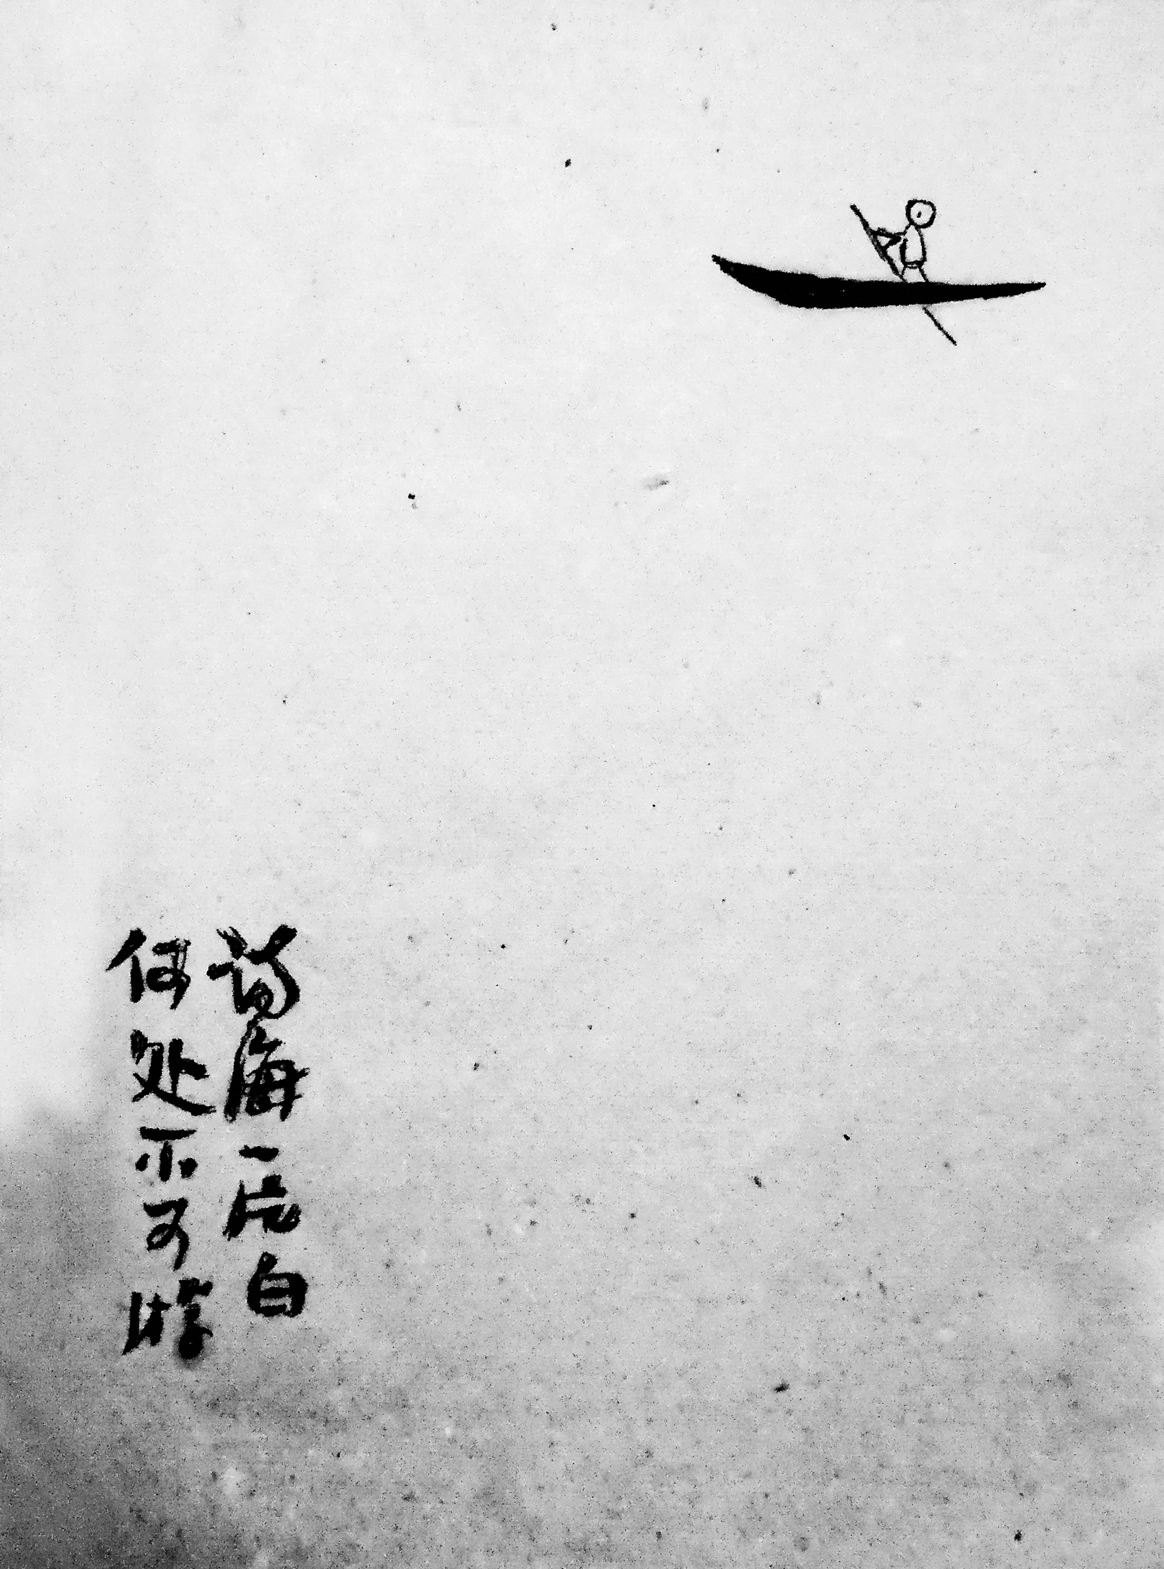 海一片白
何处不可游